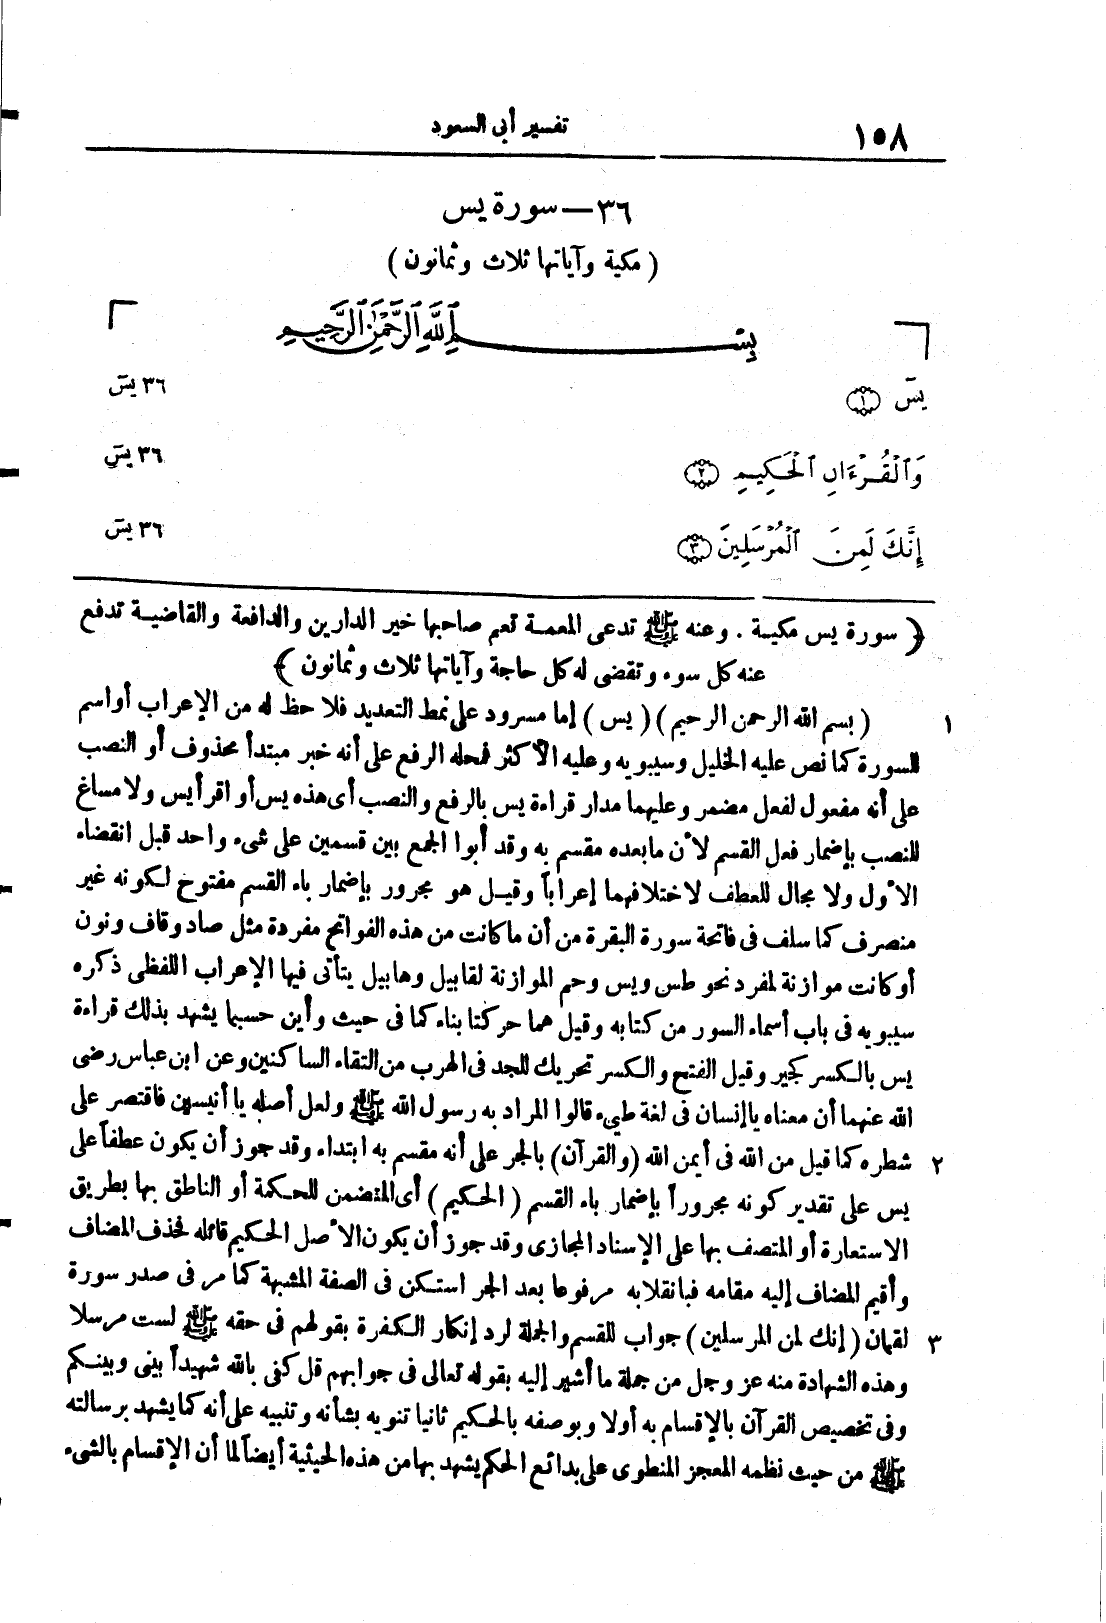 ١٥٨ تفسير أبى السعود
٣٦ — سورة يس
( مكية وآياتها ثلاث وثمانون )
بِسْمِ ٱللَّهِ ٱلرَّحْمَٰنِ ٱلرَّحِيمِ
يسٓ ١ ٣٦ يسٓ
وَٱلْقُرْءَانِ ٱلْحَكِيمِ ٢ ٣٦ يسٓ
إِنَّكَ لَمِنَ ٱلْمُرْسَلِينَ ٣ ٣٦ يسٓ
﴿ سورة يس مكية . وعنه ﷺ تدعى المعمة تعم صاحبها خير الدارين والدافعة والقاضية تدفع
عنه كل سوء وتقضى له كل حاجة وآياتها ثلاث وثمانون ﴾
١ ( بسم الله الرحمن الرحيم ) ( يس ) إما مسرود على نمط التعديد فلا حظ له من الإعراب أو اسم
للسورة كما نص عليه الخليل وسيبويه وعليه الأكثر فمحله الرفع على أنه خبر مبتدأ محذوف أو النصب
على أنه مفعول لفعل مضمر وعليهما مدار قراءة يس بالرفع والنصب أى هذه يس أو اقرأ يس ولا مساغ
للنصب بإضمار فعل القسم لأن ما بعده مقسم به وقد أبوا الجمع بين قسمين على شىء واحد قبل انقضاء
الأول ولا مجال للعطف لاختلافهما إعراباً وقيل هو مجرور بإضمار باء القسم مفتوح لكونه غير
منصرف كما سلف فى فاتحة سورة البقرة من أن ما كانت من هذه الفواتح مفردة مثل صاد وقاف ونون
أو كانت موازنة لمفرد نحو طس ويس وحم الموازنة لقابيل وهابيل يتأتى فيها الإعراب اللفظى ذكره
سيبويه فى باب أسماء السور من كتابه وقيل هما حركتا بناء كما فى حيث وأين حسبما يشهد بذلك قراءة
يس بالكسر كجير وقيل الفتح والكسر تحريك للجد فى الهرب من التقاء الساكنين وعن ابن عباس رضى
الله عنهما أن معناه يا إنسان فى لغة طيىء قالوا المراد به رسول الله ﷺ ولعل أصله يا أنيسين فاقتصر على
٢ شطره كما قيل من الله فى أيمن الله (والقرآن) بالجر على أنه مقسم به ابتداء وقد جوز أن يكون عطفاً على
يس على تقدير كونه مجروراً بإضمار باء القسم ( الحكيم ) أى المتضمن للحكمة أو الناطق بها بطريق
الاستعارة أو المتصف بها على الإسناد المجازى وقد جوز أن يكون الأصل الحكيم قائله فحذف المضاف
وأقيم المضاف إليه مقامه فبانقلابه مرفوعا بعد الجر استكن فى الصفة المشبهة كما مر فى صدر سورة
٣ لقمان ( إنك لمن المرسلين ) جواب للقسم والجملة لرد إنكار الكفرة بقولهم فى حقه ﷺ لست مرسلا
وهذه الشهادة منه عز وجل من جملة ما أشير إليه بقوله تعالى فى جوابهم قل كفى بالله شهيداً بينى وبينكم
وفى تخصيص القرآن بالإقسام به أولا وبوصفه بالحكيم ثانيا تنويه بشأنه وتنبيه على أنه كما يشهد برسالته
ﷺ من حيث نظمه المعجز المنطوى على بدائع الحكم يشهد بها من هذه الحيثية أيضاً لما أن الإقسام بالشىء